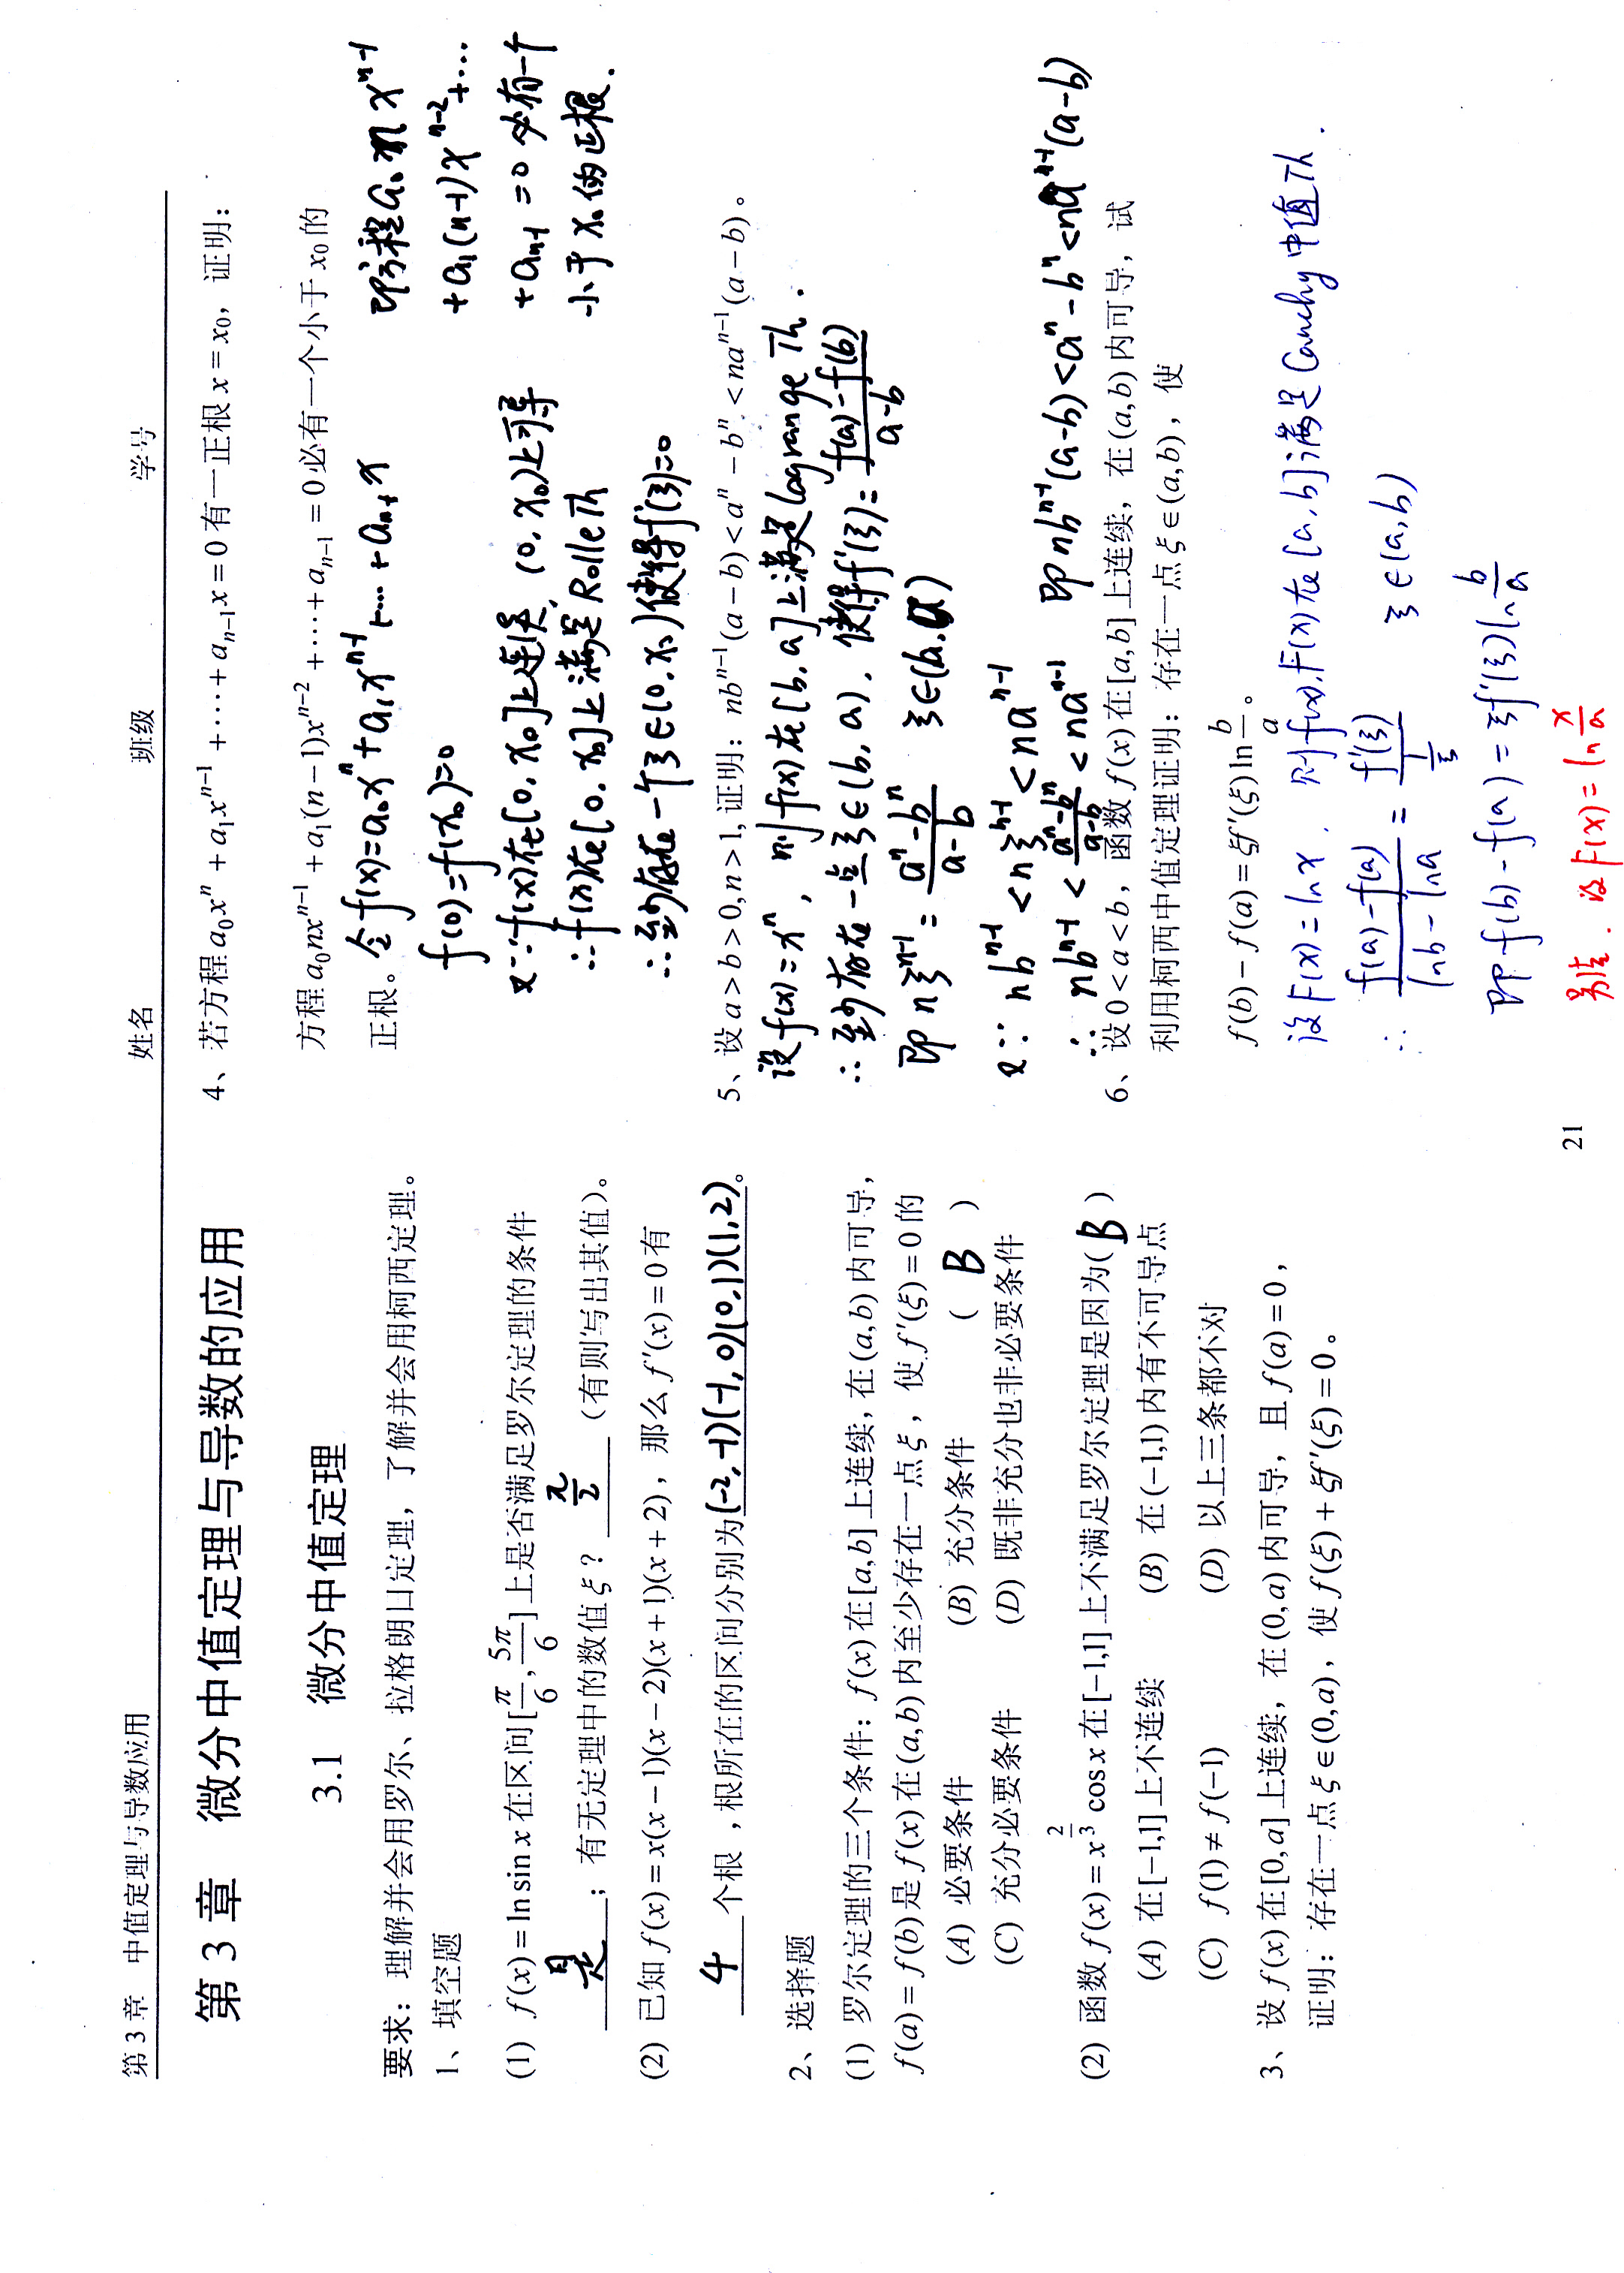 第 3 章　中值定理与导数应用
姓名　班级　学号
第 3 章　微分中值定理与导数的应用
3.1　微分中值定理
要求：理解并会用罗尔、拉格朗日定理，了解并会用柯西定理。
1、填空题
(1) f(x) = ln sin x 在区间[π/6, 5π/6]上是否满足罗尔定理的条件
是；有无定理中的数值 ξ？ π/2 （有则写出其值）。
(2) 已知 f(x) = x(x−1)(x−2)(x+1)(x+2)，那么 f′(x) = 0 有
4 个根，根所在的区间分别为(-2,-1)(-1,0)(0,1)(1,2)。
2、选择题
(1) 罗尔定理的三个条件：f(x) 在[a,b]上连续，在(a,b)内可导，
f(a) = f(b) 是 f(x) 在(a,b)内至少存在一点 ξ，使 f′(ξ) = 0 的
( B )
(A) 必要条件　(B) 充分条件
(C) 充分必要条件　(D) 既非充分也非必要条件
(2) 函数 f(x) = x^{2/3} cos x 在[−1,1]上不满足罗尔定理是因为( B )
(A) 在[−1,1]上不连续　(B) 在(−1,1)内有不可导点
(C) f(1) ≠ f(−1)　(D) 以上三条都不对
3、设 f(x) 在[0,a]上连续，在(0,a)内可导，且 f(a) = 0，
证明：存在一点 ξ∈(0,a)，使 f(ξ) + ξf′(ξ) = 0。
4、若方程 a₀xⁿ + a₁xⁿ⁻¹ + ⋯ + aₙ₋₁x = 0 有一正根 x = x₀，证明：
方程 a₀nxⁿ⁻¹ + a₁(n−1)xⁿ⁻² + ⋯ + aₙ₋₁ = 0 必有一个小于 x₀ 的
正根。
令 f(x)=a₀xⁿ+a₁xⁿ⁻¹+…+aₙ₋₁x
f(0)=f(x₀)=0
又∵f(x)在[0, x₀]上连续, (0, x₀)上可导
∴f(x)在[0, x₀]上满足Rolle Th
∴至少存在一个ξ∈(0, x₀)使得f′(ξ)=0
即方程a₀nxⁿ⁻¹
+a₁(n-1)xⁿ⁻²+…
+aₙ₋₁=0必有一个
小于x₀的正根.
5、设 a > b > 0, n > 1, 证明：nbⁿ⁻¹(a−b) < aⁿ − bⁿ < naⁿ⁻¹(a−b)。
设f(x)=xⁿ, 则f(x)在[b,a]上满足Lagrange Th.
∴至少存在一点ξ∈(b,a), 使得f′(ξ)=(f(a)-f(b))/(a-b)
即nξⁿ⁻¹=(aⁿ-bⁿ)/(a-b)　ξ∈(b,a)
又∵nbⁿ⁻¹<nξⁿ⁻¹<naⁿ⁻¹
∴nbⁿ⁻¹<(aⁿ-bⁿ)/(a-b)<naⁿ⁻¹　即nbⁿ⁻¹(a-b)<aⁿ-bⁿ<naⁿ⁻¹(a-b)
6、设 0 < a < b，函数 f(x) 在[a,b]上连续，在(a,b)内可导，试
利用柯西中值定理证明：存在一点 ξ∈(a,b)，使
f(b) − f(a) = ξf′(ξ) ln b/a。
设F(x)=lnx, 则f(x),F(x)在[a,b]满足Cauchy中值Th.
∴ (f(a)-f(a))/(lnb-lna) = f′(ξ)/(1/ξ)　ξ∈(a,b)
即f(b)-f(a)=ξf′(ξ)ln b/a
另法. 设F(x)=ln x/a
21